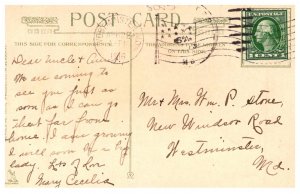 POST CARD
THIS SIDE FOR CORRESPONDENCE
Dear Uncle & Aunt,
We are coming to
see you just as
soon as I can go
that far from
home. I am growing
I will soon be a big
lady. Lots of Love
Mary Cecilia
Mr & Mrs. Wm. P. Stone,
New Windsor Road
Westminster,
Md.